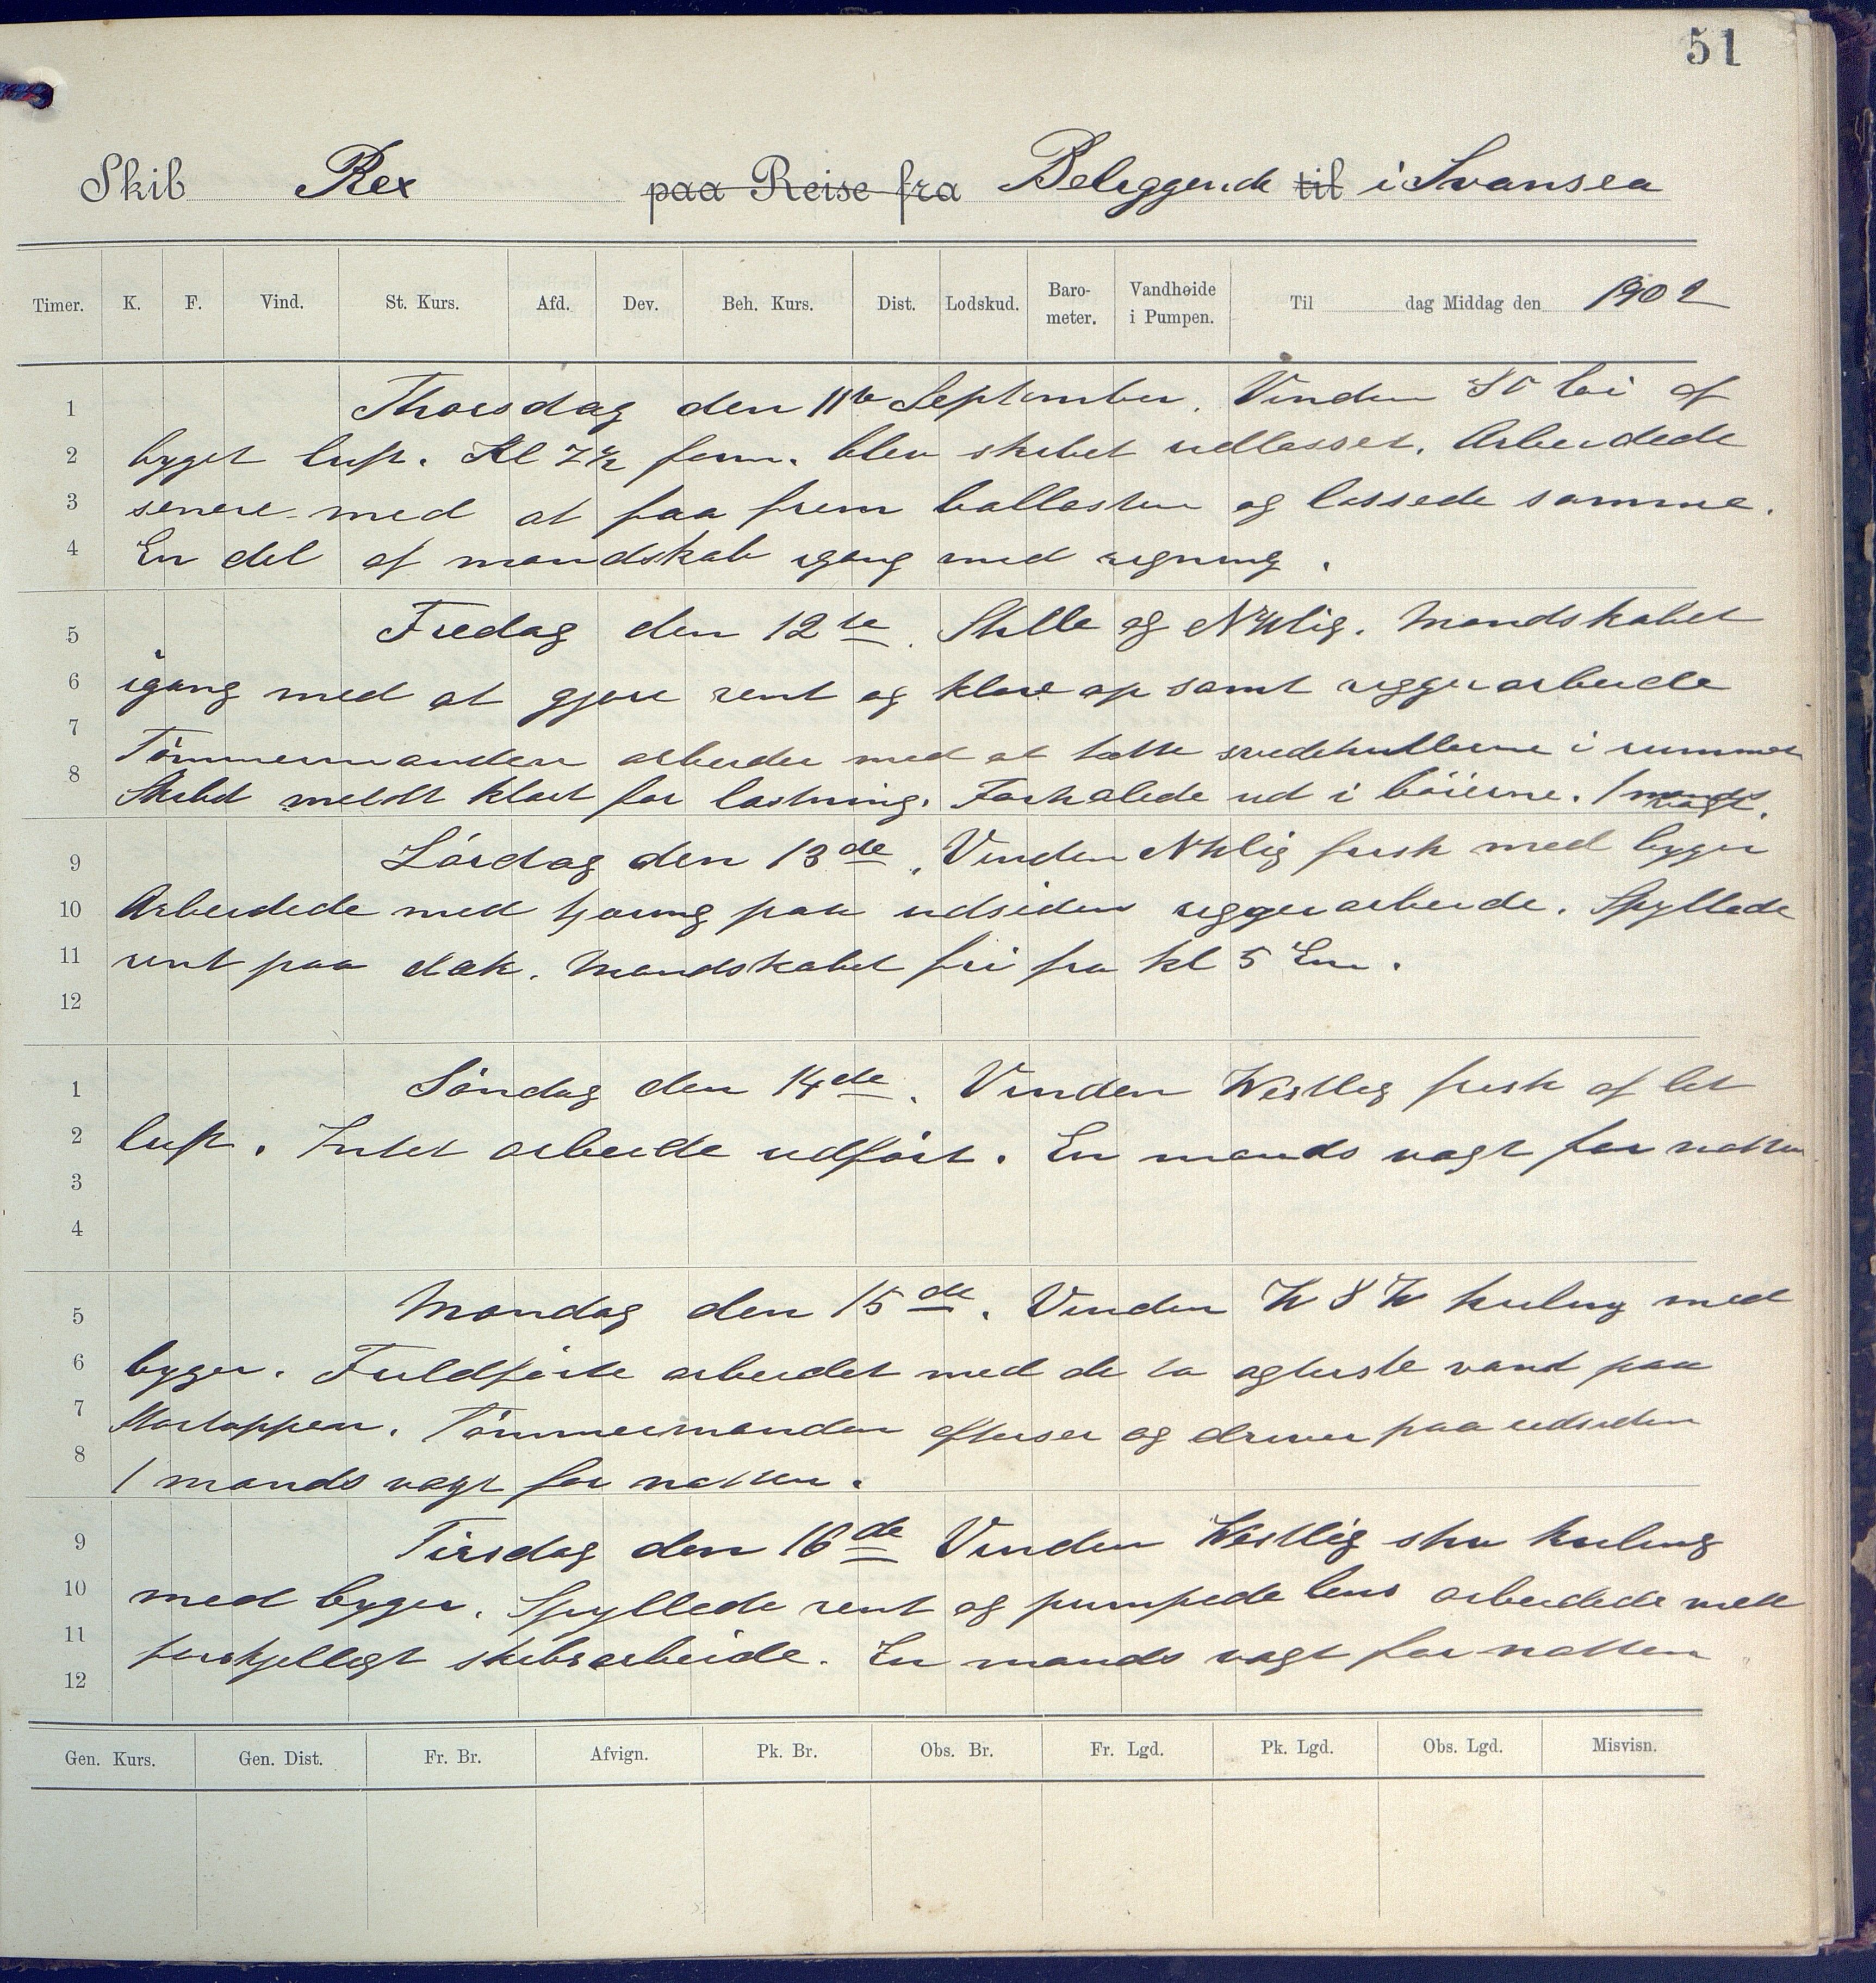 51
Skib Rex paa Reise fra Beliggende til i Svansea
Timer. K. F. Vind. St. Kurs. Afd. Dev. Beh. Kurs. Dist. Lodskud. Baro-meter. Vandhøide i Pumpen. Til dag Middag den 1902
1 Thorsdag den 11te September. Vinden SO lai af
2 byget luft. Kl 7½ form. blev skibet udlosset. Arbeidede
3 senere med at faa frem ballasten og lossede samme.
4 En del af mandskab igang med rigning.
5 Fredag den 12te. Stille og NVlig. Mandskabet
6 igang med at gjøre rent og klare op samt riggerarbeide
7 Tömmermanden arbeider med at tætte svedehullerne i rummet
8 Skibet meldt klart for lastning. Forhalede ud i böierne. 1 mands vagt.
9 Lördag den 13de. Vinden NVlig frisk med byger
10 Arbeidede med tjæring paa udsiden riggerarbeide. Spyllede
11 rent paa dæk. Mandskabet fri fra kl 5 Em.
12
1 Söndag den 14de. Vinden Westlig frisk af let
2 luft. Intet arbeide udfört. En mands vagt for natten
3
4
5 Mandag den 15de. Vinden WSW kuling med
6 byger. Fuldförte arbeidet med de to agterste vant paa
7 Stortoppen. Tömmermanden efterser og driver paa udsiden
8 1 mands vagt for natten.
9 Tirsdag den 16de Vinden Westlig stiv kuling
10 med byger. Spyllede rent og pumpede lens arbeidede med
11 forskjelligt skibsarbeide. En mands vagt for natten
12
Gen. Kurs. Gen. Dist. Fr. Br. Afvign. Pk. Br. Obs. Br. Fr. Lgd. Pk. Lgd. Obs. Lgd. Misvisn.